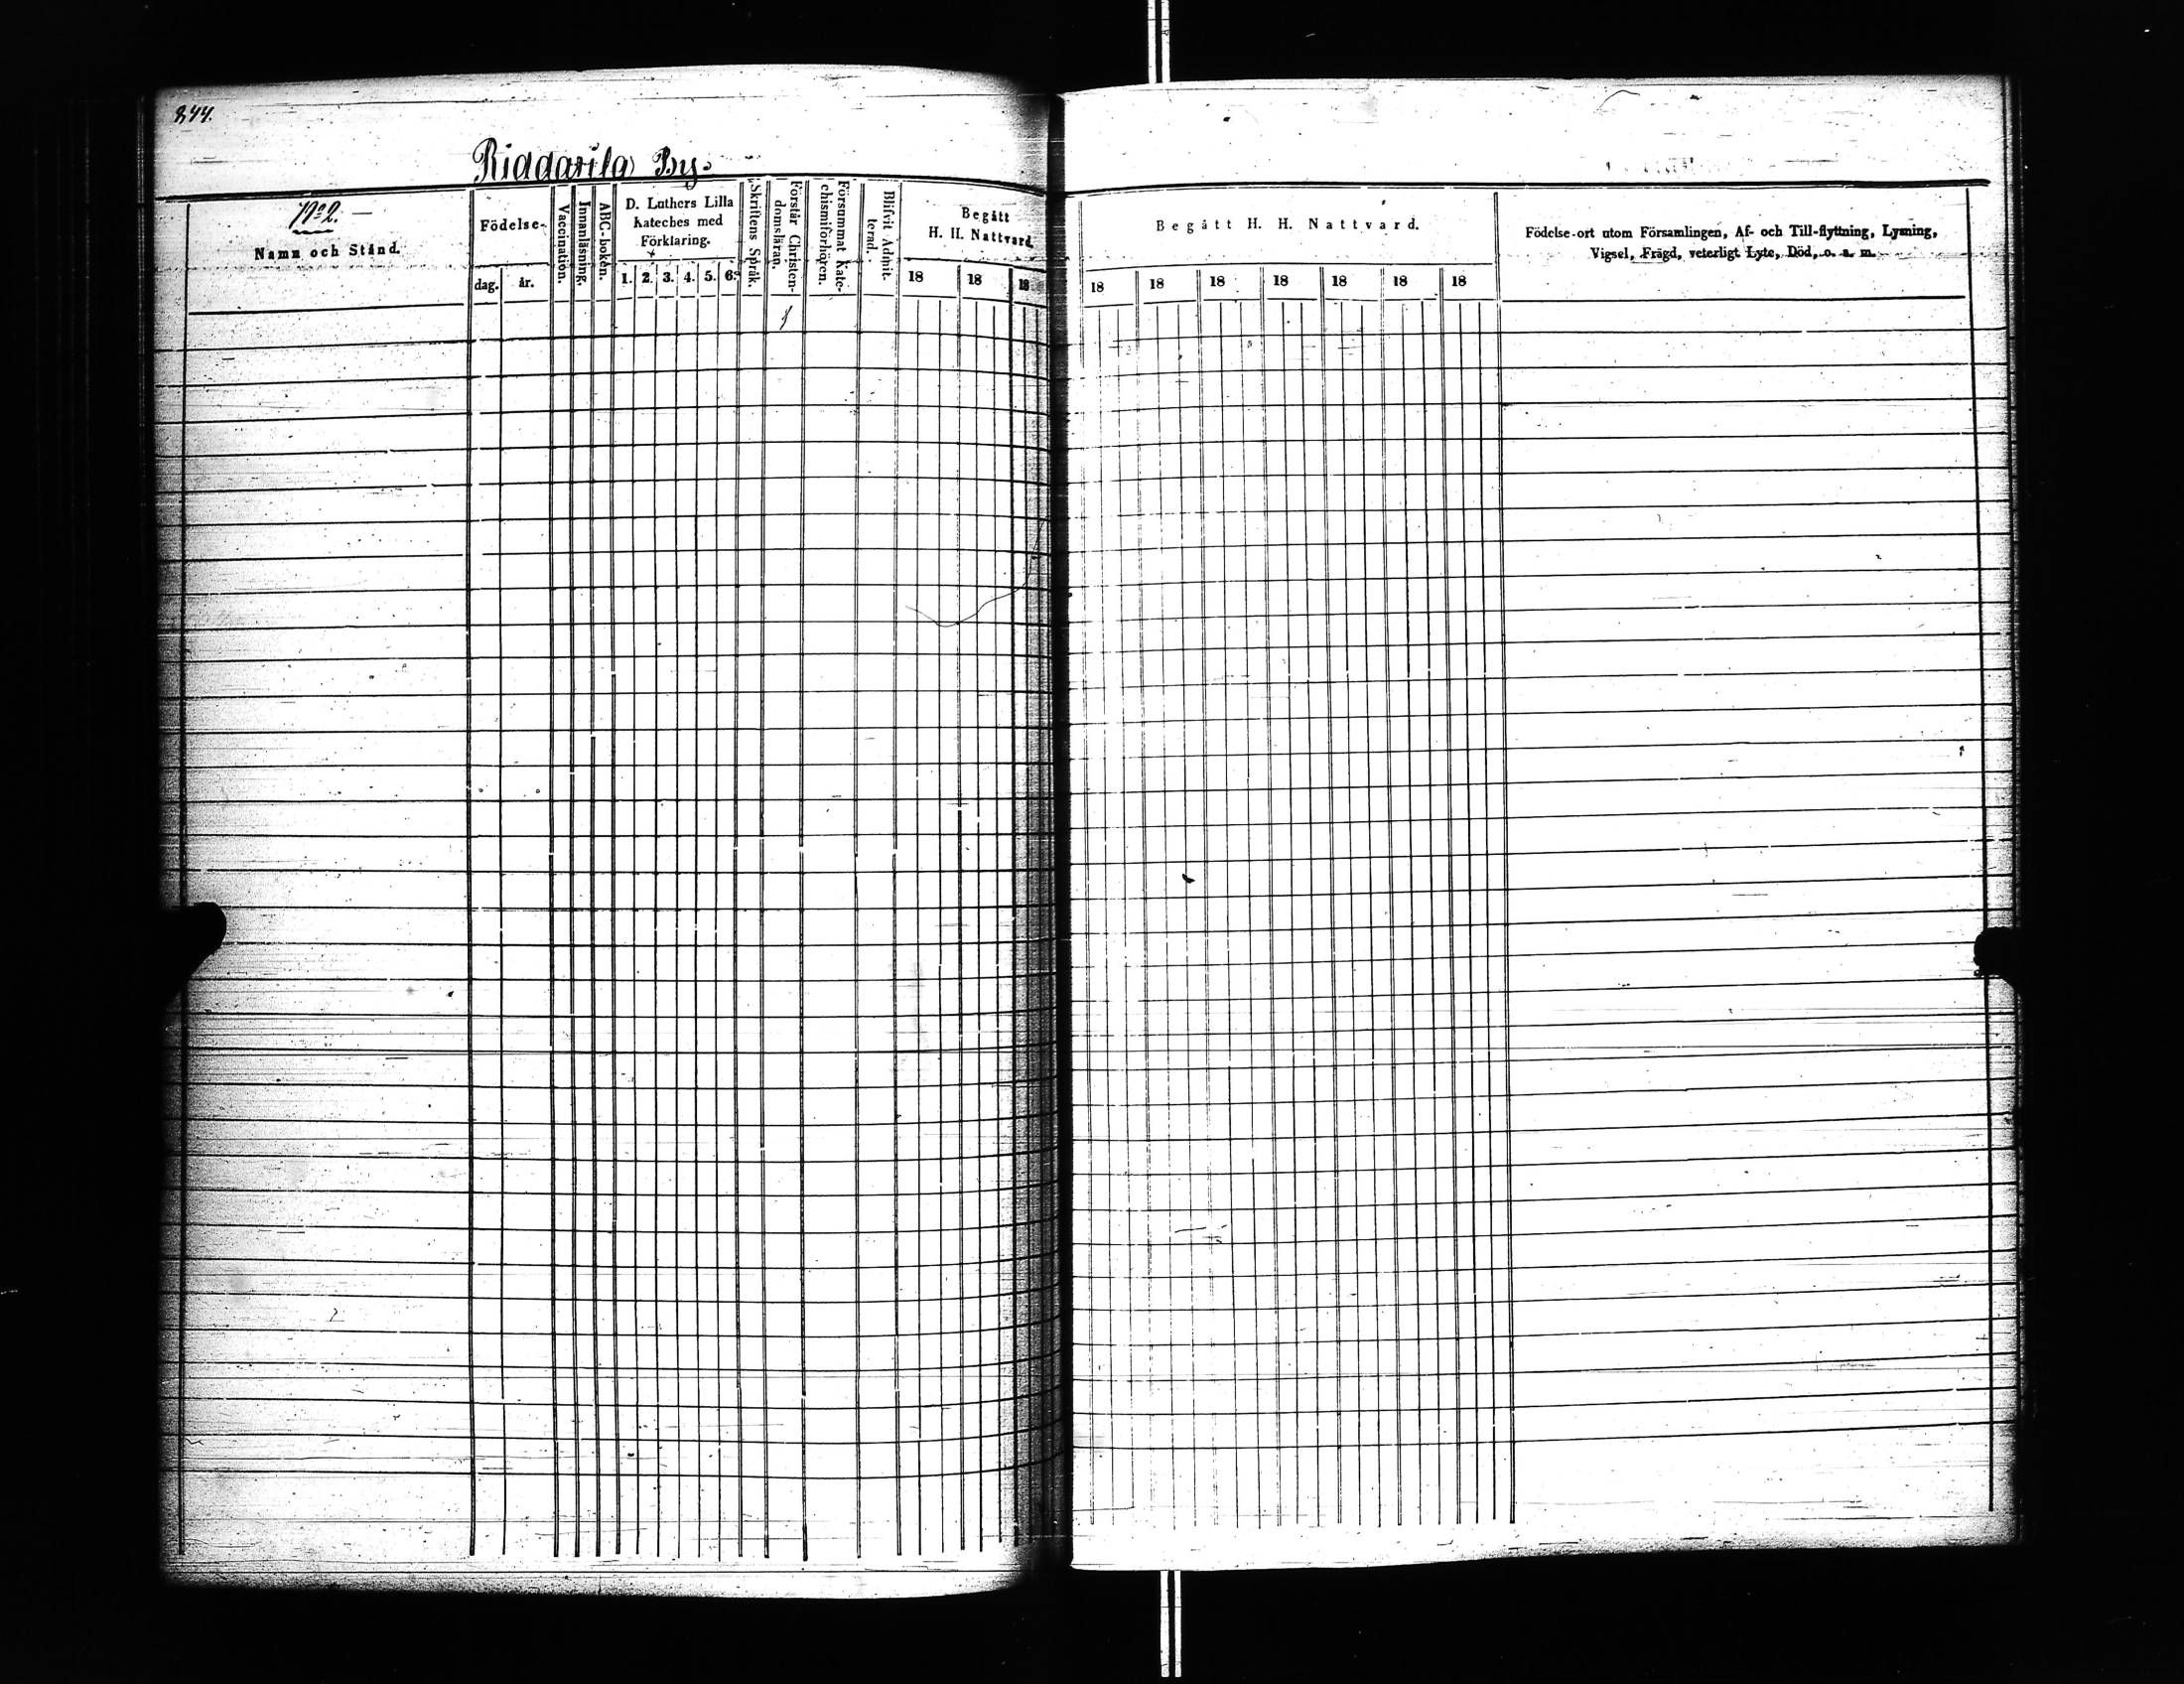 844.
Riddarila By.
N:o 2. —
Namn och Stånd.
Födelse-
dag. år.
Vaccination.
Innanläsning.
ABC-boken.
D. Luthers Lilla
Kateches med
Förklaring.
1. 2. 3. 4. 5. 6.
Skriftens Språk.
Förstår Christen-
domsläran.
Försummat Kate-
chismiförhören.
Blifvit Admit-
terad.
Begått
H. H. Nattvard.
18 18 18
Begått H. H. Nattvard.
18 18 18 18 18 18 18
Födelse-ort utom Församlingen, Af- och Till-flyttning, Lysning,
Vigsel, Frägd, veterligt Lyte, Död, o. s. m.